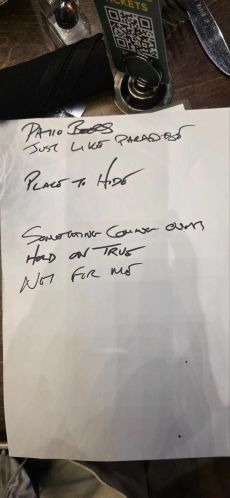 TICKETS
PATIO BEERS
JUST LIKE PARADISE
PLACE TO HIDE
SOMETHING COMING OVER
HOLD ON TRUE
NOT FOR ME